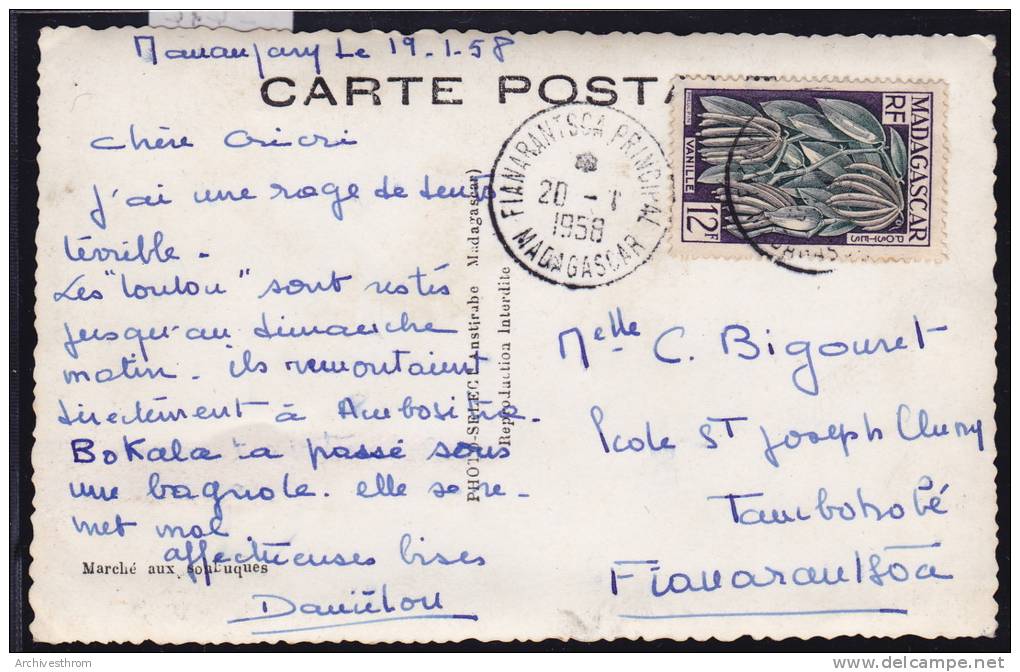 Mananjary Le 19.1.58
CARTE POSTA
Chère Cricri
j'ai une rage de dents
terrible.
Les "Loulou" sont restés
jusqu'au dimanche
matin. ils remontaient
directement à Ambositra.
BoKala a passé sous
une bagnole. elle se re-
met mal
affectueuses bises
Daniélou
Marché aux soubiques
PHOTO-SELECT Antsirabe Madagascar)
Reproduction Interdite
FIANARANTSOA PRINCIPAL
20 - 1
1958
MADAGASCAR
MADAGASCAR
RF
POSTES
VANILLE
12F
Melle C. Bigouret
Ecole St Joseph Cluny
Tambohobé
Fianarantsoa
Archivesthrom
delcampe.net